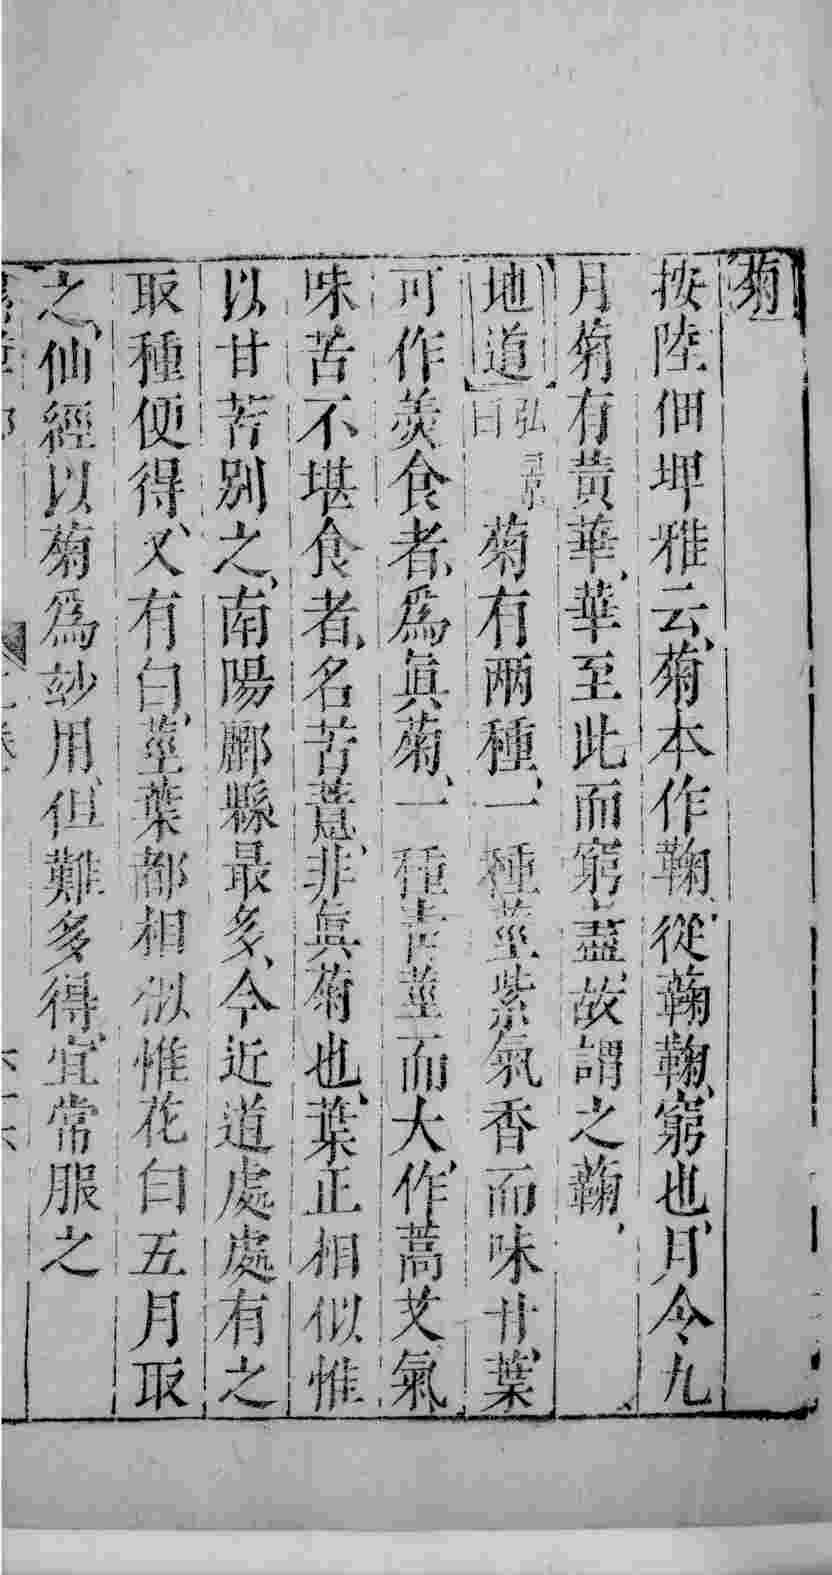 菊
按陸佃埤雅云、菊本作鞠、從蘜鞠、窮也、月令九
月菊有黃華、華至此而窮盡、故謂之蘜、
地道 弘景曰 菊有兩種、一種莖紫氣香而味甘、葉
可作羹食者、爲眞菊、一種青莖而大、作蒿艾氣
味苦不堪食者、名苦薏、非眞菊也、葉正相似惟
以甘苦別之、南陽酈縣最多、今近道處處有之
取種便得、又有白、莖葉都相似惟花白五月取
之、仙經以菊爲玅用、但難多得、宜常服之